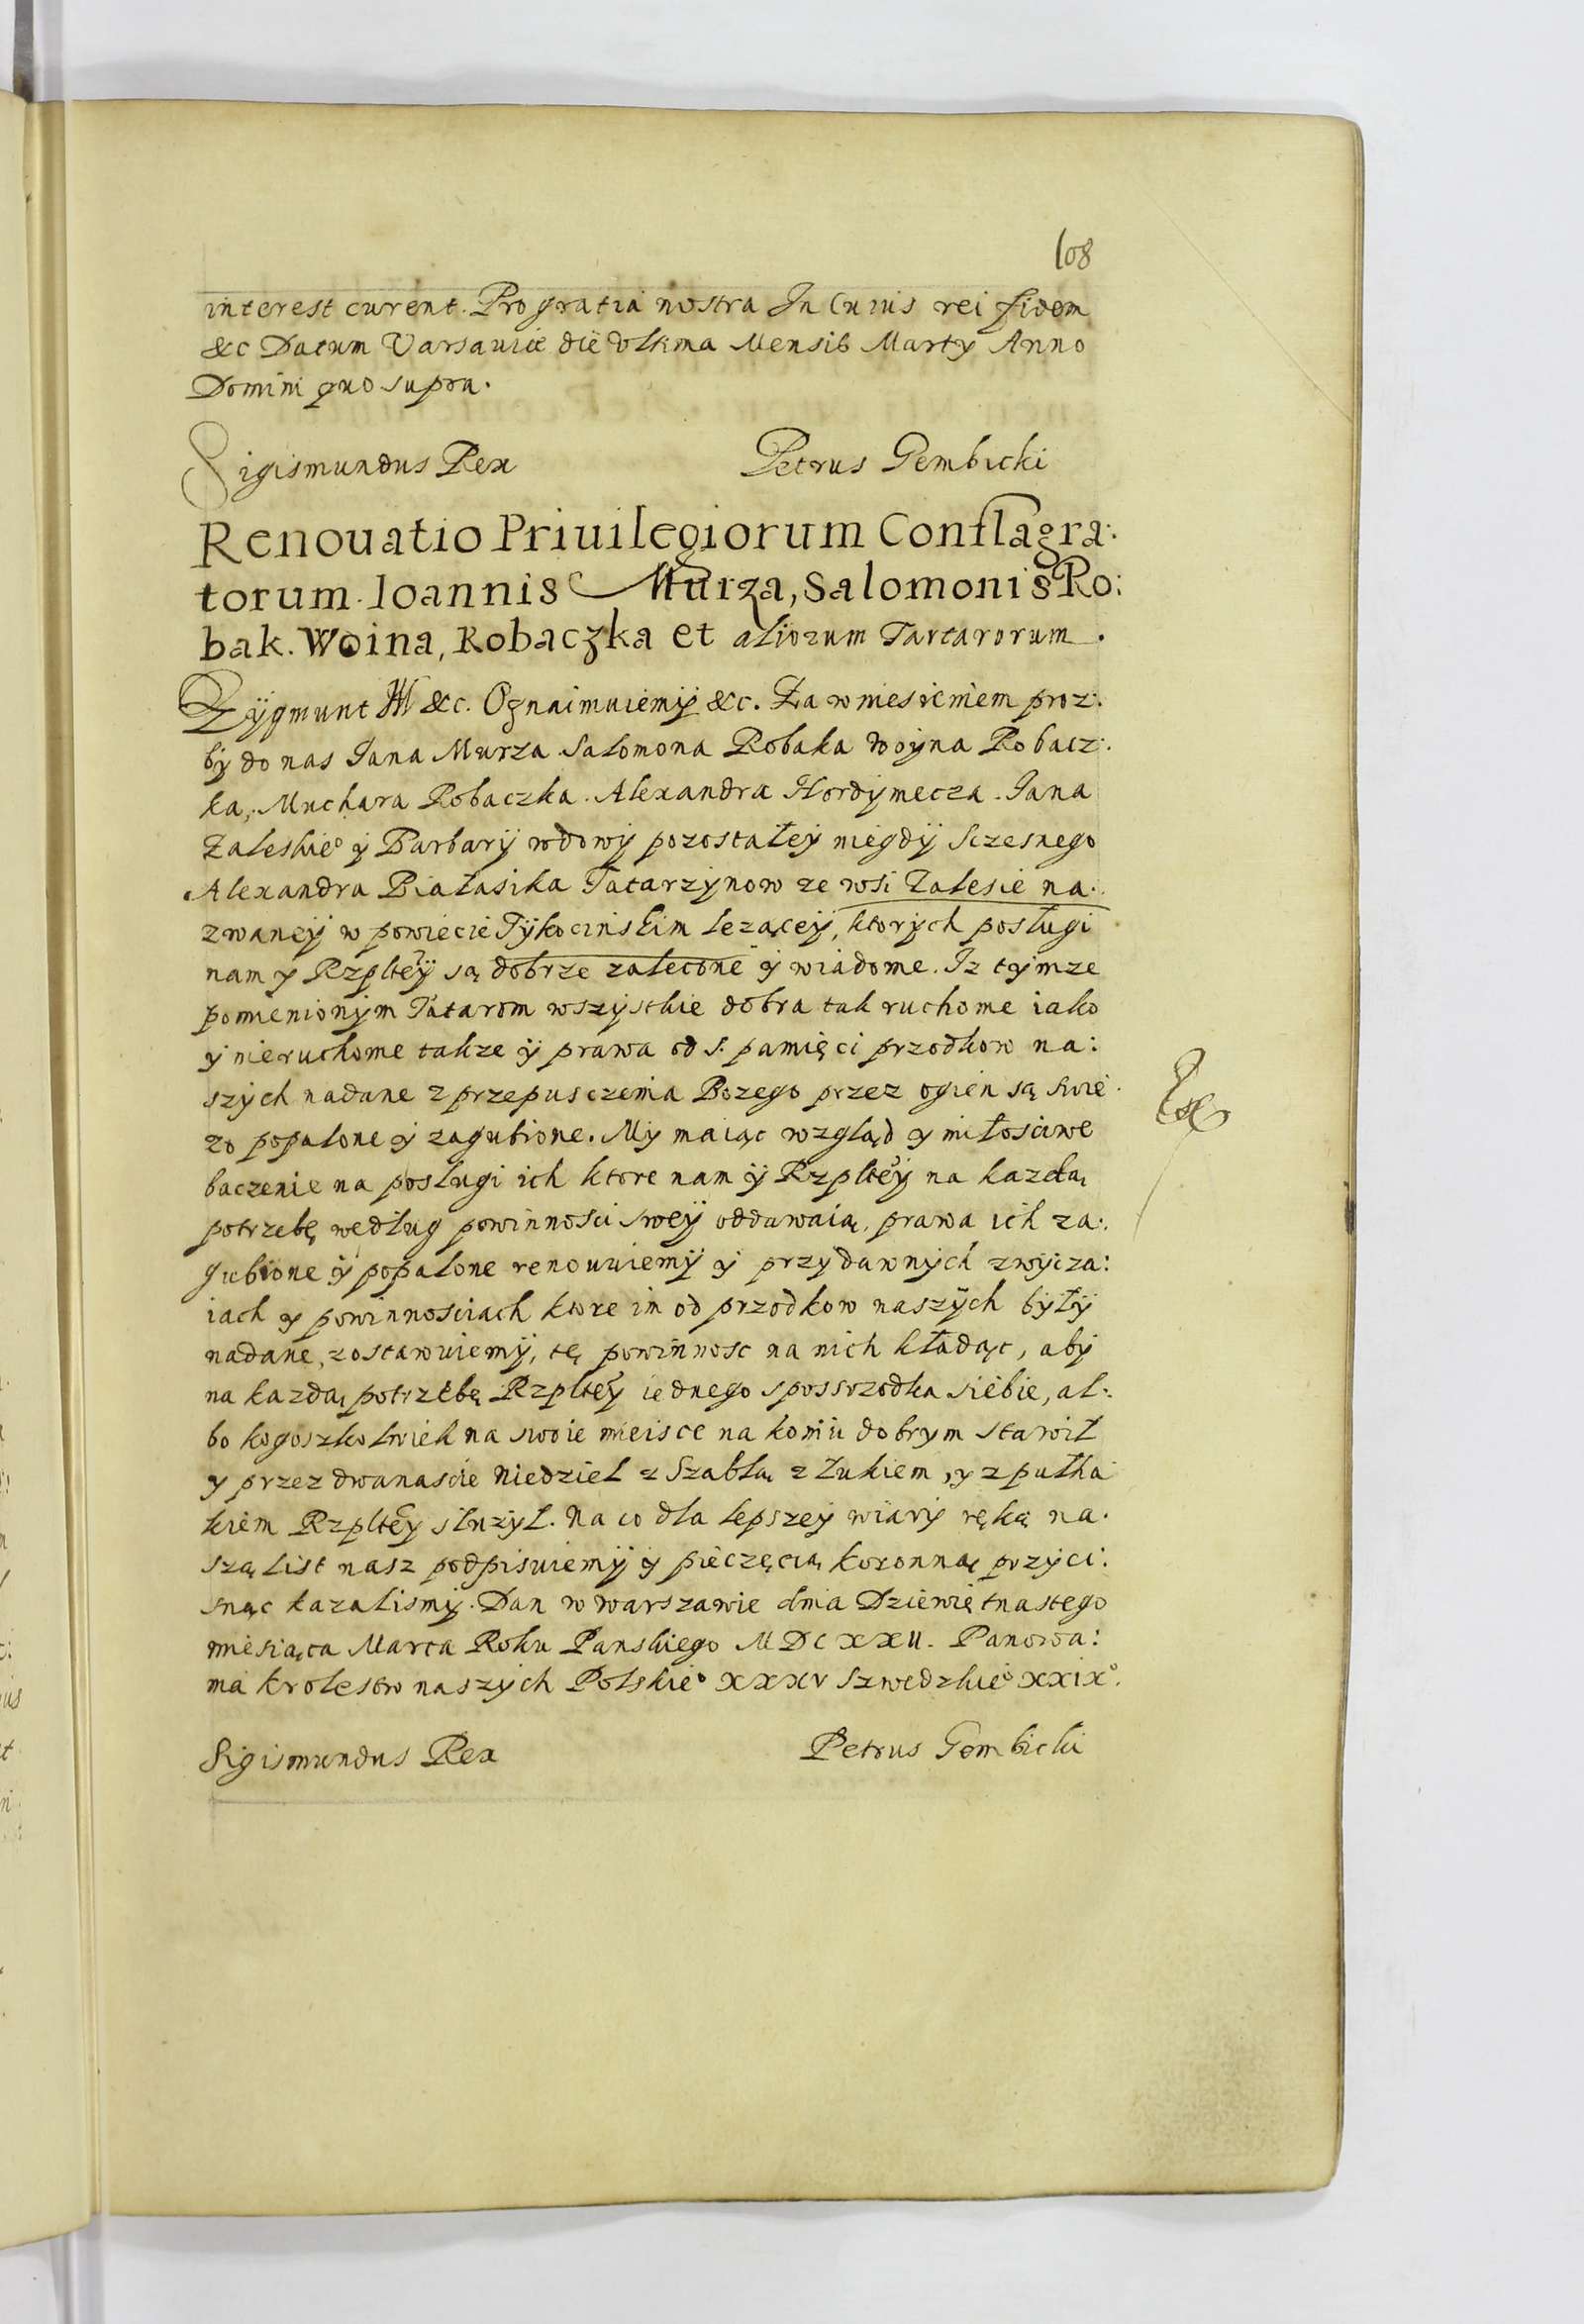 108
interest curent. Pro gratia nostra In Cuius rei fidem
&c Datum Varsauiæ die Vltima Mensis Marty Anno
Domini quo supra.
Sigismundus Rex Petrus Gembicki
Renouatio Priuilegiorum Conflagra:
torum Ioannis Murza, Salomonis Ro:
bak. Woina, Robaczka et aliorum Tartarorum.
Zygmunt III &c. Oznaimuiemy &c. Za wniesieniem proz:
by do nas Jana Murza Salomona Robaka Woyna Robacz:
ka, Muchara Robaczka. Alexandra Hordymecza. Jana
Zaleskie° y Barbary wdowy pozostałey niegdy Sczesnego
Alexandra Białasika Tatarzynow ze wsi Zalesie na:
zwaney w powiecie Tykocinskim lezącey, ktorych posługi
nam y Rzpltey są dobrze zalecone y wiadome. Iz tymze
pomienionym Tatarom wszystkie dobra tak ruchome iako
y nieruchome takze y prawa od s. pamięci przodkow na:
szych nadane z przepusczenia Bozego przez ogien są swie
zo popalone y zagubione. My maiąc wzgląd y miłosciwe
baczenie na posługi ich ktore nam y Rzpltey na kazdą
potrzebę według powinnosci swey oddawaią, prawa ich za:
gubione y popalone renouuiemy y przy dawnych zwycza:
iach y powinnosciach ktore im od przodkow naszych były
nadane, zostawuiemy, tę powinnosc na nich kładąc, aby
na kazdą potrzebę Rzpltey iednego spossrzodka siebie, al:
bo kogoszkolwiek na swoie mieisce na koniu dobrym stawił
y przez dwanascie niedziel z Szablą z łukiem, y z pułha
kiem Rzpltey słuzył. Na co dla lepszey wiary ręką na.
szą list nasz podpisuiemy y pieczęcią koronną przyci:
snąc kazalismy. Dan w Warszawie dnia Dziewiętnastego
miesiąca Marca Roku Panskiego MDCXXII. Panowa:
nia krolestw naszych Polskie° XXXV Szwedzkie° XXIX°.
Sigismundus Rex Petrus Gembicki